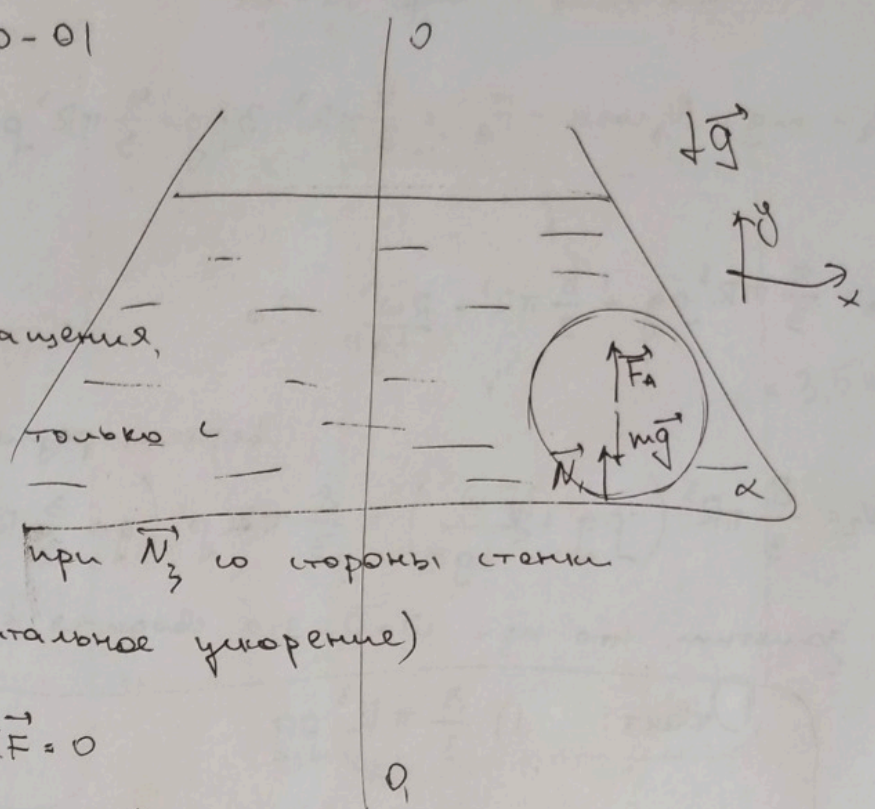 0-01
O
↓g⃗
y
x
ащения,
F⃗A
только с
mg⃗
N⃗1
α
при N⃗3 со стороны стенки
тальное ускорение)
F⃗ = 0
O1